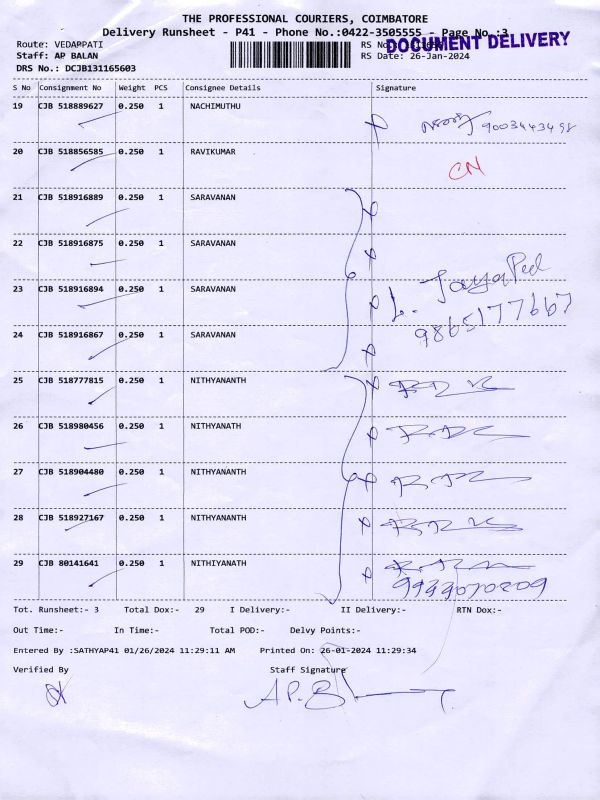 THE PROFESSIONAL COURIERS, COIMBATORE
Delivery Runsheet - P41 - Phone No.:0422-3505555 - Page No.:3
Route: VEDAPPATI
RS No.:
DOCUMENT DELIVERY
Staff: AP BALAN
RS Date: 26-Jan-2024
DRS No.: DCJB131165603
S No Consignment No Weight PCS Consignee Details Signature
19 CJB 518889627 0.250 1 NACHIMUTHU 9003443498
20 CJB 518856585 0.250 1 RAVIKUMAR CN
21 CJB 518916889 0.250 1 SARAVANAN
22 CJB 518916875 0.250 1 SARAVANAN
23 CJB 518916894 0.250 1 SARAVANAN
24 CJB 518916867 0.250 1 SARAVANAN
25 CJB 518777815 0.250 1 NITHYANANTH
26 CJB 518980456 0.250 1 NITHYANATH
27 CJB 518904480 0.250 1 NITHYANANTH
28 CJB 518927167 0.250 1 NITHYANANTH
29 CJB 80141641 0.250 1 NITHIYANATH
Tot. Runsheet:- 3 Total Dox:- 29 I Delivery:- II Delivery:- RTN Dox:-
Out Time:- In Time:- Total POD:- Delvy Points:-
Entered By :SATHYAP41 01/26/2024 11:29:11 AM Printed On: 26-01-2024 11:29:34
Verified By Staff Signature
A P. B